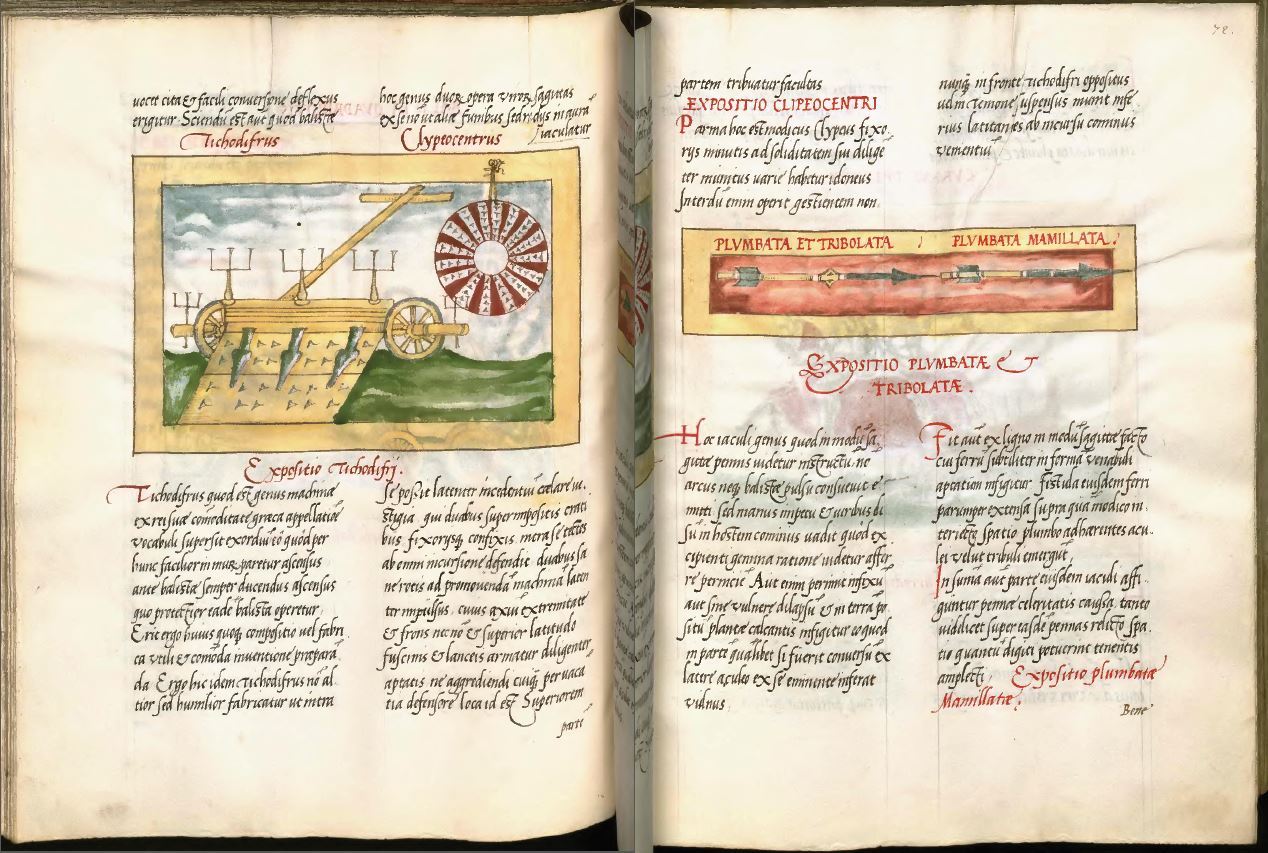 vocet cita & facili conversione deflexus
erigitur. Sciendu est aut quod balistæ
hoc genus duor opera viror sagittas
ex se no ut aliæ funibus sed
iaculatur
Tichodifrus
Clypeocentrus
Expositio Tichodifri.
Tichodifrus quod est genus machinæ
ex rei suæ comoditate græca appellatioe
vocabuli supersit exordiu eo quod per
hunc facilior in mur paretur ascensus
ante balistã semper ducendus ascensus
quo protectior eadẽ balista operetur
Erit ergo huius quoq compositio vel fabri
ca utili & comoda inventione præpara
da Ergo hic idem Tichodifrus no al
tior sed humilior fabricatur ut intra
se possit latenter incedentiu cælare ve
stigia qui duabus superimpositis crati
bus fixorysq confixis intra se tectos
ab omni incursione defendit duabus sa
ne rotis ad promovenda machina laten
ter impulsus, cuius axiu extremitate
& frons nec no & superior latitudo
fuscinis & lanceis armatur diligenter
aptatis ne aggrediendi cuiq per vaca
tia defensore loca id est Superiorem
parte
72.
partem tribuatur facultas
EXPOSITIO CLIPEOCENTRI
Parma hoc est modicus Clypeus fixo
rijs minutis ad soliditatem sui dilige
ter munitus varie habetur idoneus
Interdu enim operit gestientem non
nunq in fronte Tichodifri oppositus
vel in Temone suspensus munit infe
rius latitantes ab incursu cominus
venientiu
PLVMBATA ET TRIBOLATA
PLVMBATA MAMILLATA.
EXPOSITIO PLVMBATÆ &
TRIBOLATÆ.
Hoc iaculi genus quod in modu sa
gittæ pennis videtur instructu. no
arcus neq balistæ pulsu consuevit e
mitti sed manus impetu & viribus
su in hostem cominus vadit quod ex
cipienti gemina ratione videtur affer
re pernicie Aut enim perimit infixu
aut sine vulnere dilapsu & in terra po
situ plantæ calcantis infigitur eo quod
in parte qualibet si fuerit conversu ex
latere aculeo ex se eminente inferat
vulnus.
Fit aut ex ligno in modu sagittæ facto
cui ferru subtiliter in forma venabuli
aptatum infigitur Fistula eiusdem ferri
parumper extensa supra qua modico in
teriecto spatio plumbo adherentes acu
lei velut tribuli emergut
In suma aut parte eiusdem iaculi affi
guntur pennæ celeritatis caussa, tanto
vidilicet super easdẽ pennas relicto spa
tio quantu digiti potuerint tenentis
amplecti. Expositio plumbatæ
Mamillatæ.
Bene